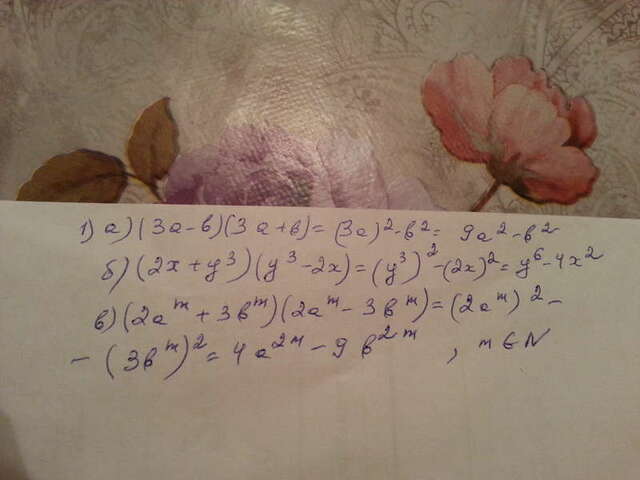 1) а) (3а-в)(3а+в)=(3а)²-в²= 9а²-в²
б) (2x+y³)(y³-2x)=(y³)²-(2x)²=y⁶-4x²
в) (2aᵐ+3вᵐ)(2aᵐ-3вᵐ)=(2aᵐ)²-
-(3вᵐ)²=4a²ᵐ-9в²ᵐ, m∈N